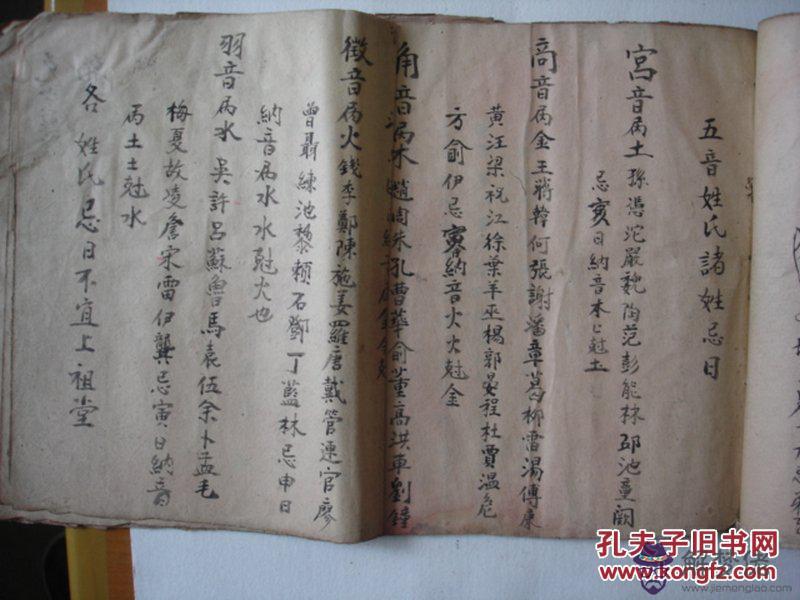 五音姓氏諸姓忌日
宮音屬土孫馮沱嚴魏陶范彭熊林邱池童闕
忌亥日納音木木尅土
商音屬金王蔣韓何張謝潘章葛柳雷湯傅康
黃汪梁祝江徐葉羊巫楊郭晏程杜賈溫危
方俞伊忌寅納音火火尅金
角音屬木趙周朱孔曹華俞董高洪車劉鐘
徵音屬火錢李鄭陳施姜羅唐戴管連官廖
曾聶練池黎賴石鄧丁藍林忌申日
納音屬水水尅火也
羽音屬水吳許呂蘇魯馬袁伍余卜孟毛
梅夏故凌詹宋雷伊龔忌寅日納音
屬土土尅水
各姓氏忌日不宜上祖堂
孔夫子旧书网
www.kongfz.com
解梦佬
www.jiemenglao.com